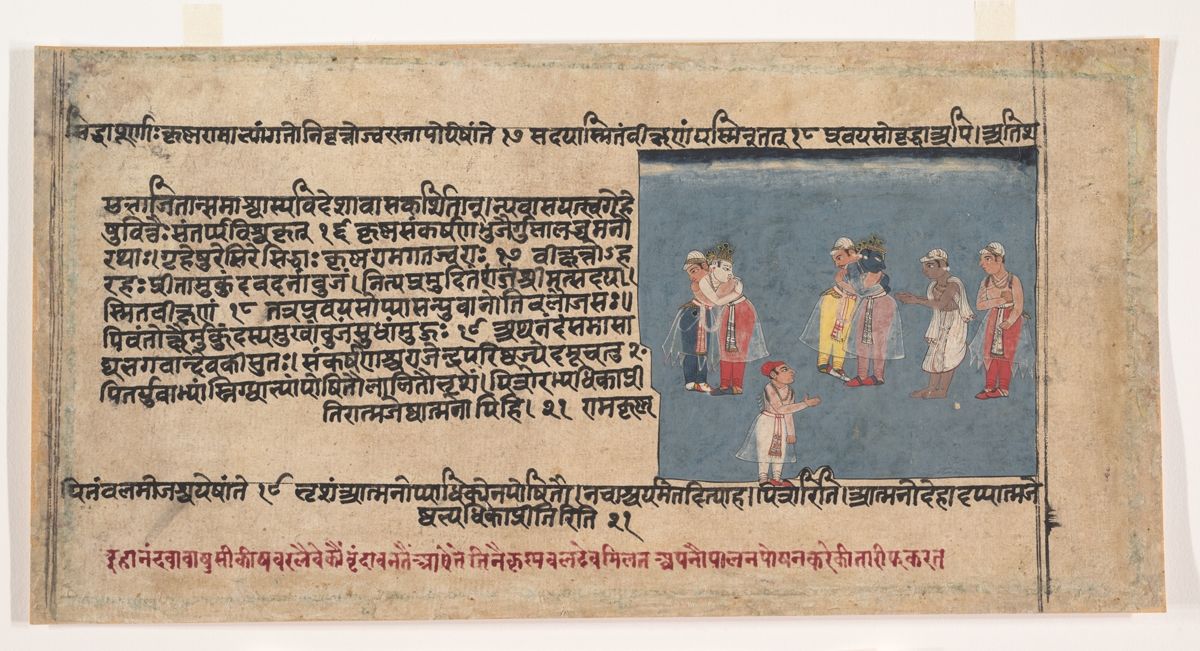 सिद्धाः पूर्णाः कृष्णरामाभ्यां गतो निवृत्तो ज्वरस्तापो येषां ते १७ सदयस्मितं वीक्षणं यस्मिन् तत् १८ प्रवयसो वृद्धा अपि। अतिश
जितान्समाश्वास्य विदेशावासकर्शितान्। न्यवासयत्स्वगेहे
षु वित्तैः संतर्प्य विश्वकृत् १६ कृष्णसंकर्षणभुजैर्गुप्ता लब्धमनो
रथाः। गृहेषु रेमिरे सिद्धाः कृष्णरामगतज्वराः १७ वीक्षंतोऽह
रहः प्रीता मुकुंदवदनांबुजं। नित्यं प्रमुदितं श्रीमत्सदय।
स्मितवीक्षणं १८ तत्र प्रवयसोप्यासन्युवानोतिबलोजसः॥
पिबंतोक्षैर्मुकुंदस्य मुखांबुजसुधां मुहुः १९ अथ नंदं समासा
द्य भगवान्देवकीसुतः। संकर्षणश्च राजेन्द्र परिष्वज्येदमूचतुः २०
पितर्युवाभ्यां स्निग्धाभ्यां पोषितौ लालितौ भृशं। पित्रोरभ्यधिका प्री
तिरात्मजेष्वात्मनोपि हि। २१ रामकृष्ण
बलमोजश्च येषां ते १९ भृशं आत्मनोप्यधिकत्वेन पोषितौ। न चाश्चर्यमेतदित्याह। पित्रोरिति। आत्मनो देहादप्यात्मजे
ष्वभ्यधिका प्रीतिरिति २१
नंदबाबा वृंदावनतैं आऐ कृष्ण बलदेव मिलत अपनौ पालन पोषन करे की तारीफ करत